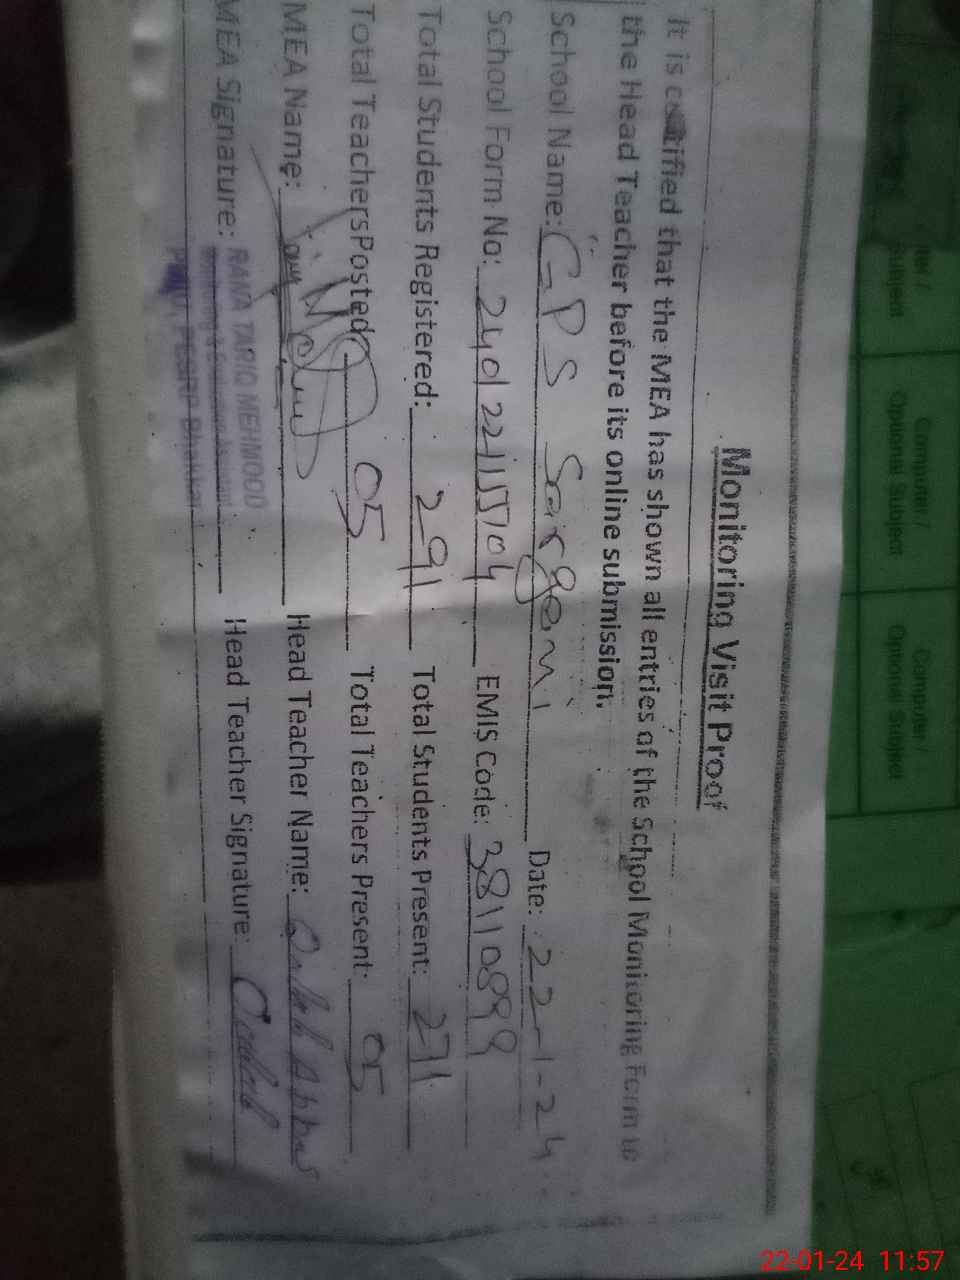 Monitoring Visit Proof
It is certified that the MEA has shown all entries of the School Monitoring Form to
the Head Teacher before its online submission.
School Name: GPS Date: 22-1-24
School Form No: EMIS Code: 38110899
Total Students Registered: 291 Total Students Present: 271
Total TeachersPosted 05 Total Teachers Present: 05
MEA Name: Head Teacher Name:
MEA Signature: Head Teacher Signature:
RANA TARIQ MEHMOOD
Bhakkar
Computer /
Optional Subject
Computer /
Optional Subject
22-01-24 11:57